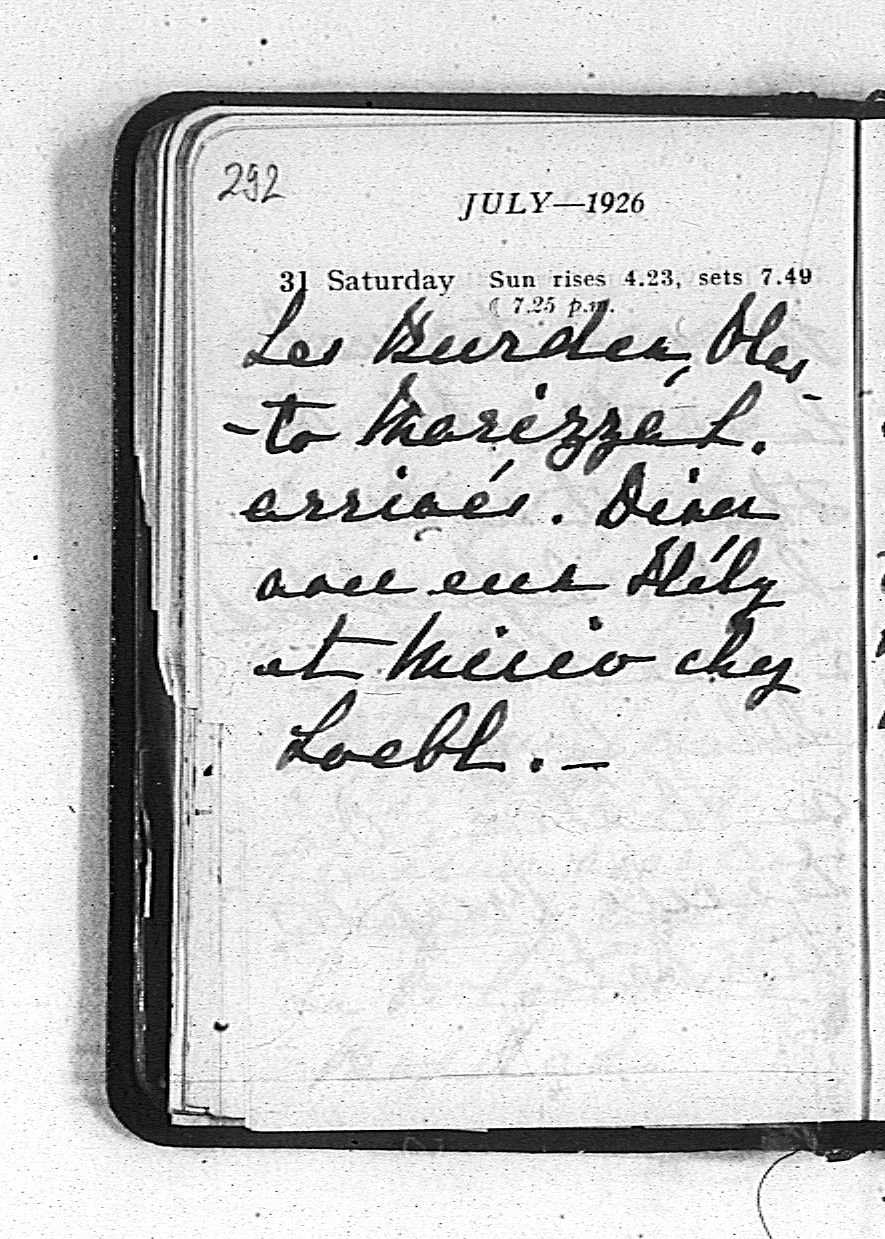 292
JULY—1926
31 Saturday Sun rises 4.23, sets 7.49
☾ 7.25 p.m.
Les Burden,
-to Marizza L.
arrivés. Diner
avec eux
et chez
Loebl. —